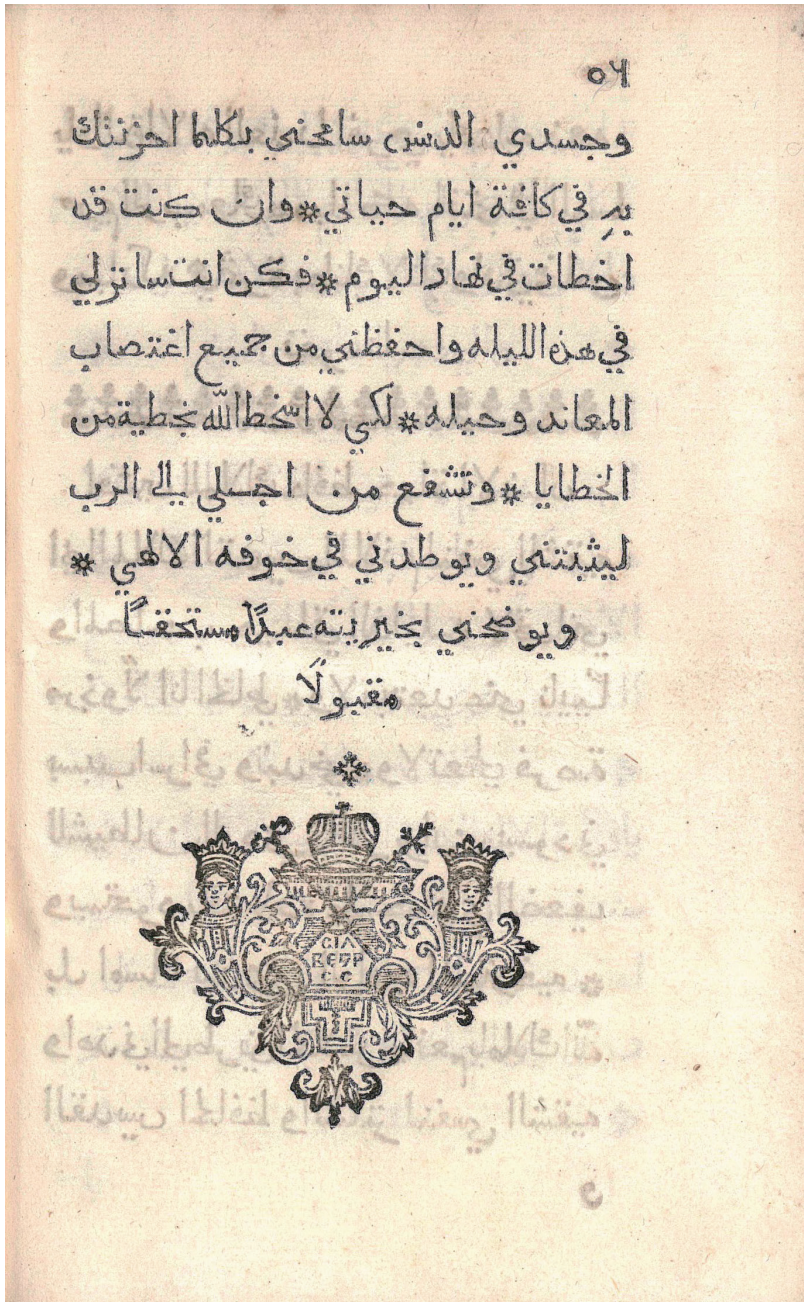 ٥٦
وجسدي الدنس سامحني بكلما احزنتك
بهِ في كافة ايام حياتي * وان كنت قد
اخطات في نهار اليوم * فكن انت ساترلي
في هذه الليله واحفظني من جميع اغتصاب
المعاند وحيله * لكي لا اسخط اللّه بخطية من
الخطايا * وتشفع من اجلي الى الرب
ليثبتني ويوطدني في خوفه الالهي *
ويوضحني بخيريته عبدًا مستحقًا
مقبولًا
СІЛ
ВЕСТР
С С